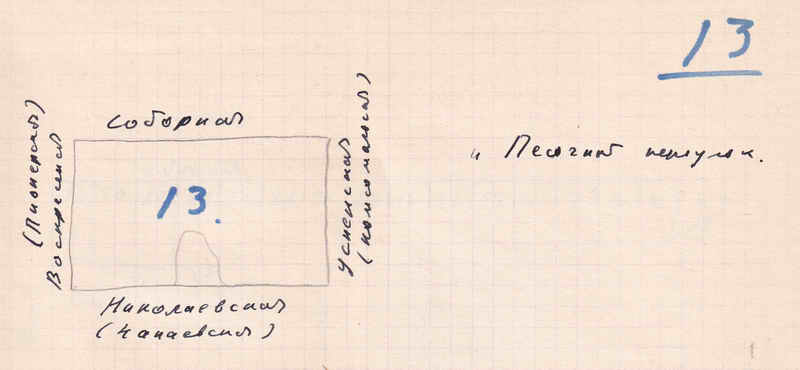 13
Соборная
(Пионерская)
Воскресенск
13.
Успенская
(Комсомольская)
Николаевская
(Чапаевская)
и Песочный переулок.